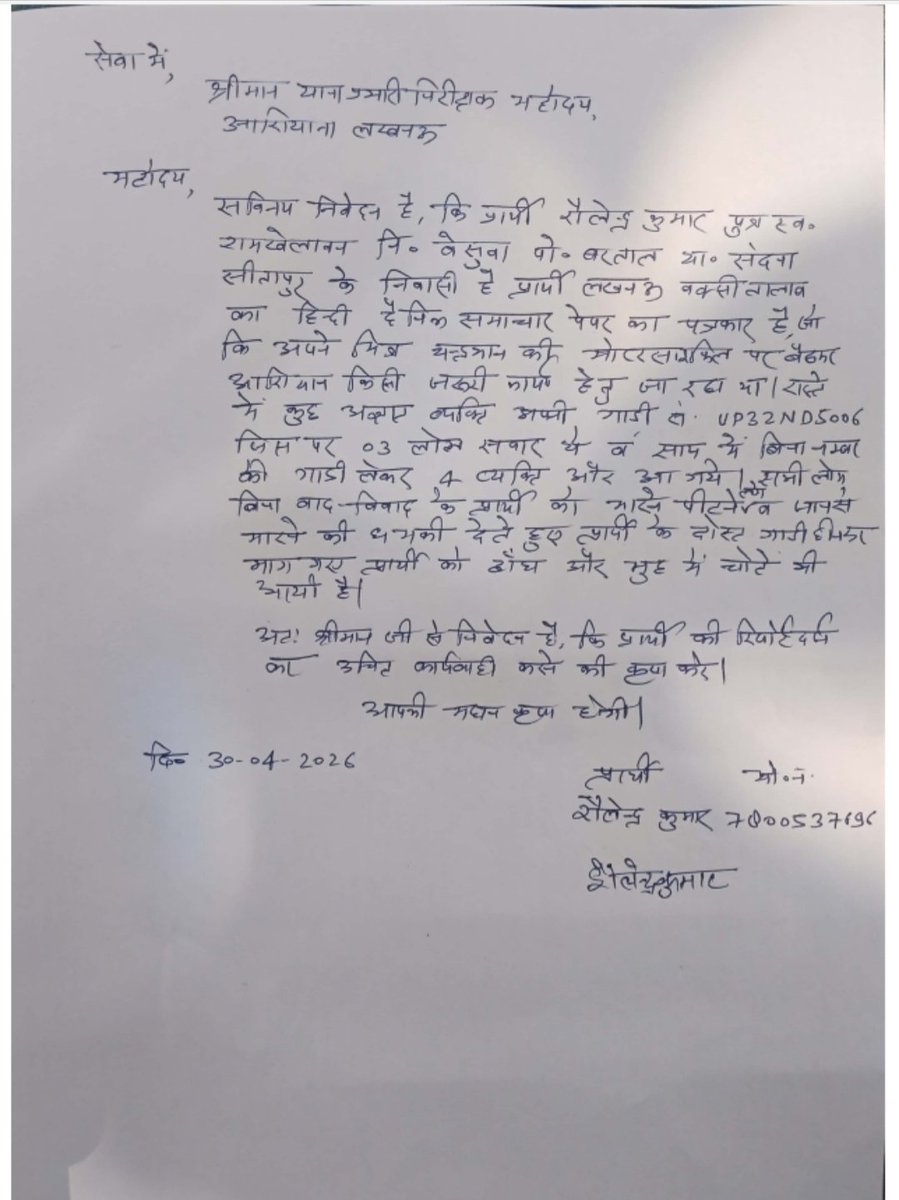 सेवा में,
श्रीमान थाना प्रभारी निरीक्षक महोदय,
आशियाना लखनऊ
महोदय,
सविनय निवेदन है, कि प्रार्थी शैलेन्द्र कुमार पुत्र स्व०
रामखेलावन नि० वेसुवा पो० बरताल था० संदना
सीतापुर के निवासी है प्रार्थी लखनऊ बक्सी तालाब
का हिन्दी दैनिक समाचार पेपर का पत्रकार है, जो
कि अपने मित्र चन्द्रभान की मोटरसाइकिल पर बैठकर
आशियान किसी जरूरी कार्य हेतु जा रहा था। रास्ते
में कुछ अज्ञात व्यक्ति अपनी गाडी सं. UP32ND5006
जिस पर 03 लोग सवार थे व साथ में बिना नम्बर
की गाडी लेकर 4 व्यक्ति और आ गये। सभी लोग
बिना वाद-विवाद के प्रार्थी को मारने पीटने लगे व जान से
मारने की धमकी देते हुए प्रार्थी के दोस्त गाडी छीनकर
भाग गए प्रार्थी को जाँघ और मुह में चोटे भी
आयी है।
अतः श्रीमान जी से निवेदन है, कि प्रार्थी की रिपोर्ट दर्ज
कर उचित कार्यवाही करने की कृपा करे।
आपकी महान कृपा होगी।
दि० 30-04-2026
प्रार्थी मो०न.
शैलेन्द्र कुमार
शैलेन्द्र कुमार